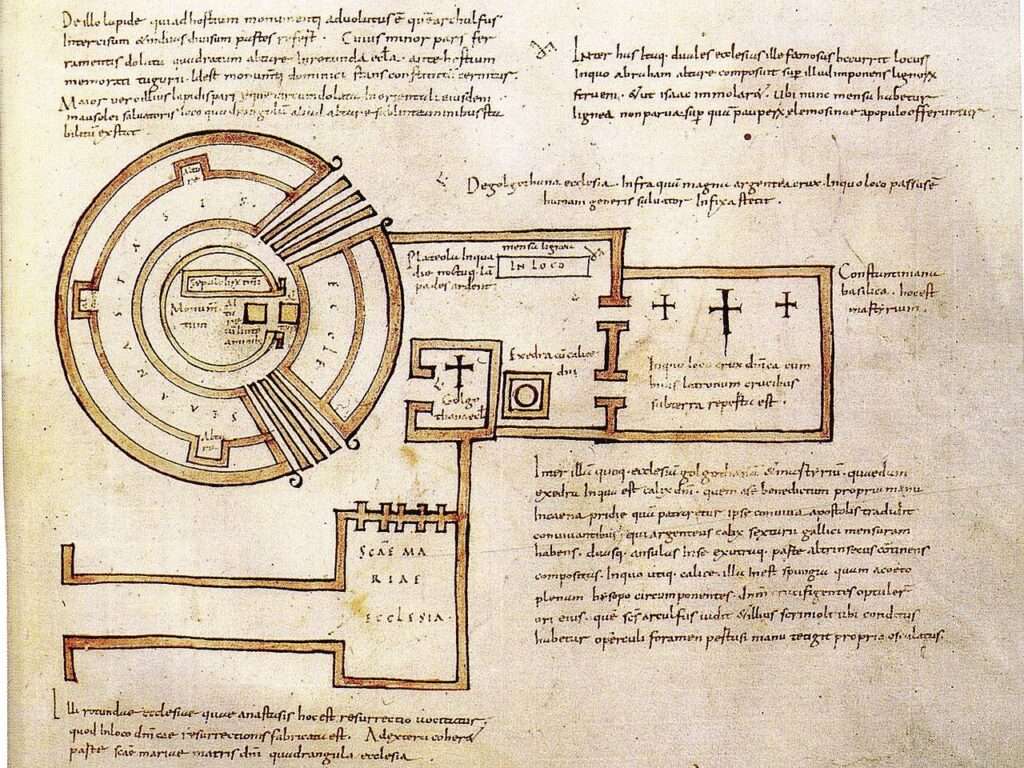 De illo lapide qui ad hostium monumenti advolutus ē quē arculfus
Intercisum & in duas divisum partes refert. Cuius minor pars fer
ramentis dolata quadratum altare in rotunda eccla. ante hostium
memorati tugurii. id est monumti dominici stans constitutū cernitur.
Maior vero illius lapidis pars eque circumdolata In orientali eiusdem
mausolei salvatoris loco quadrangulum aliud altare
exstat.
Inter has itaq; duales ecclesias ille famosus occurrit locus
In quo abraham altare composuit sup illud imponens lignorx
struem. & ut isaac immolarȩ. Ubi nunc mensa habetur
lignea non parva sup quā pauperx elemosinae a populo offeruntur
De golgothana ecclesia. Infra quā magna argentea crux. In quo loco passus ē
humani generis salvator Infixa stetit.
Altare
Sepulchrx dmi
Monumentum
Altare
ECCLE
SIA
ANASTASIS
Plateola In qua
die noctuq; lā
pades ardent
mensa lignea
IN LOCO
Constantiniana
basilica. hoc est
martyrium.
Golgo
thana eccl
Exedra cū calice
dni
In quo loco crux dnica cum
binis latronum crucibus
sub terra reperta est.
SCAE MA
RIAE
ECCLESIA.
Inter illā quoq; ecclesiā golgothanā & martyriū. quaedam
exedra In qua est calix dni. quem a se benedictum propria manu
In caena pridie quā pateretur ipse conviva apostolis tradidit
convivantibus; qui argenteus calix sextarii gallici mensuram
habens. duasq; ansulas In se ex utraq; parte altrinsecus cōtinens
compositus. In quo utiq; calice. illa Inest spungia quam aceto
plenam hesopo circumponentes. dnm crucifigentes optuler
ori eius. quē scs arculfus vidit & illius scrinioli ubi conditus
habetur operculi foramen pertusi manu tetigit propria osculatus.
Illi rotundae ecclesiae quae anastasis hoc est resurrectio vocitatur.
quod In loco dnicae resurrectionis fabricata est. A dextera coheret
parte scae mariae matris dni quadrangula ecclesia